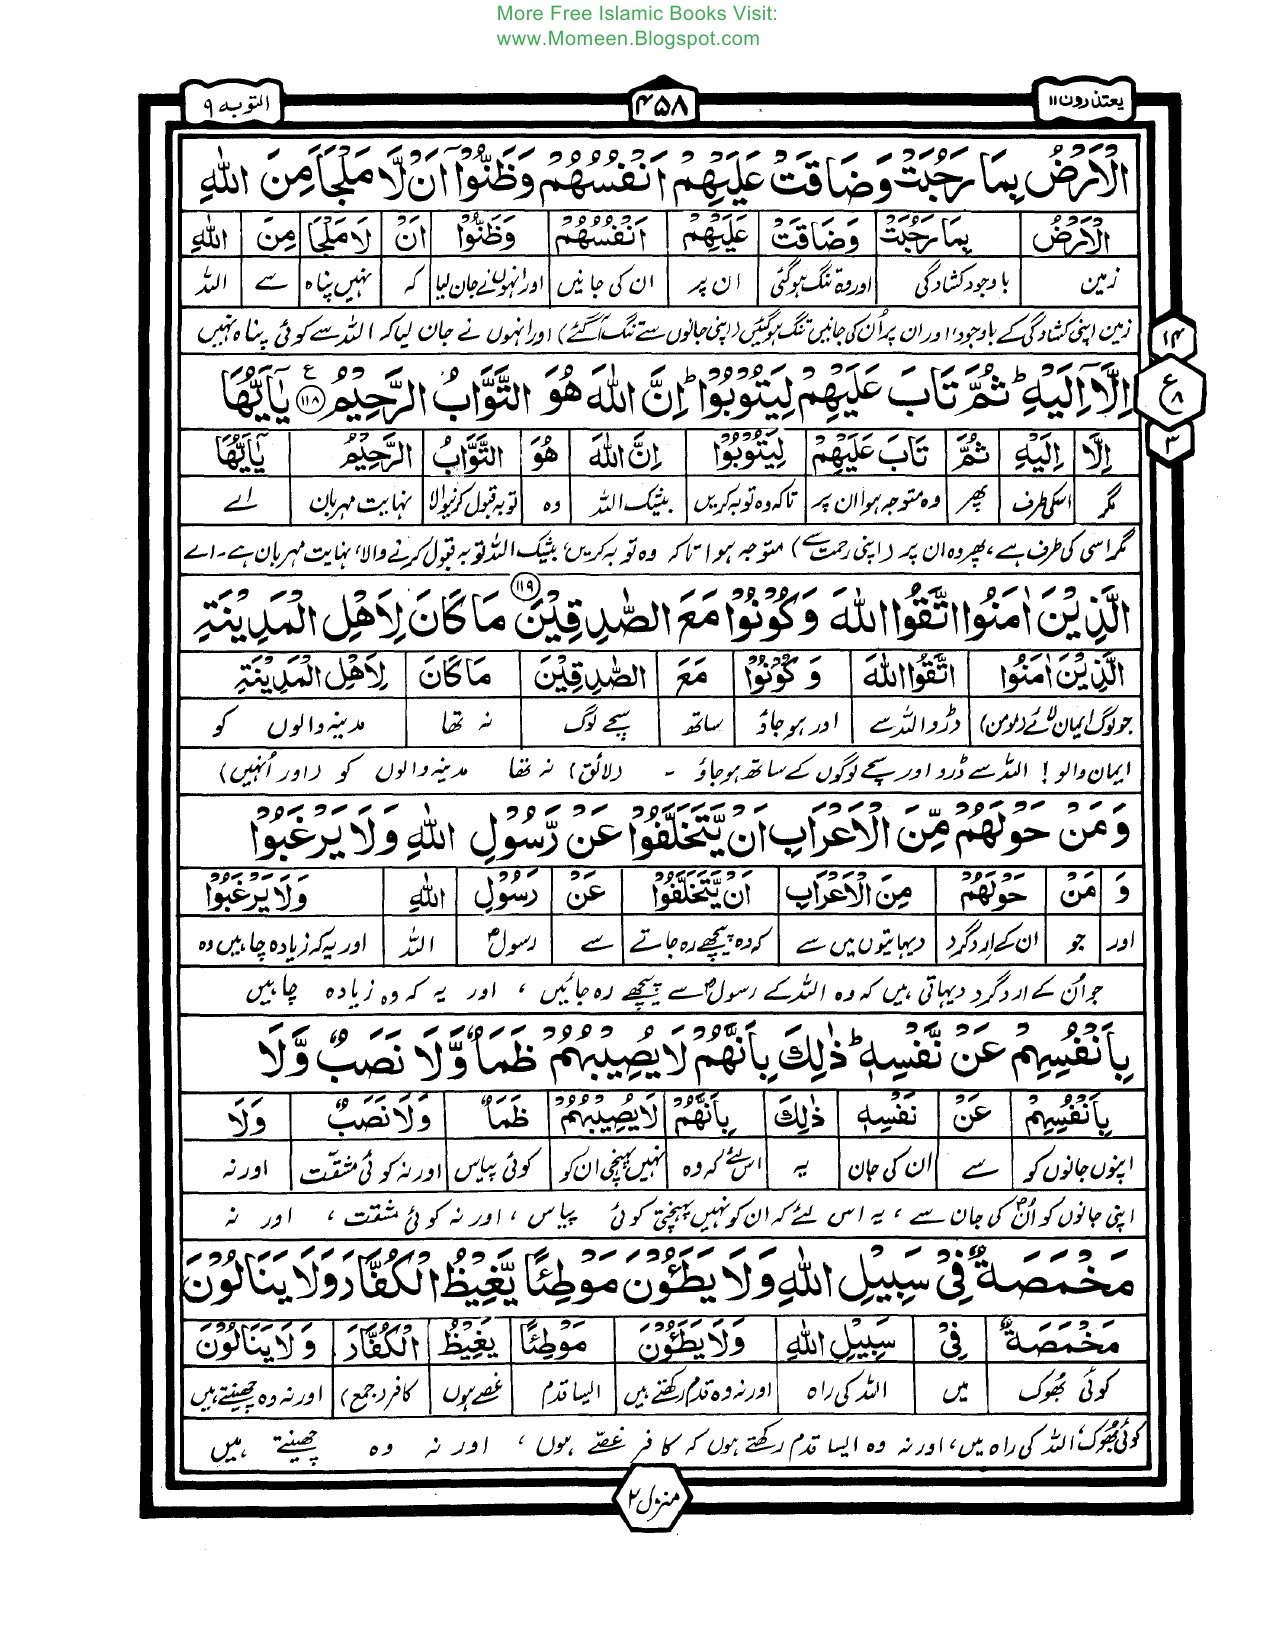 More Free Islamic Books Visit:
www.Momeen.Blogspot.com
یعتذرون ۱۱
۴۵۸
التوبہ ۹
الْاَرْضُ بِمَا رَحُبَتْ وَضَاقَتْ عَلَيْهِمْ اَنْفُسُهُمْ وَظَنُّوْٓا اَنْ لَّا مَلْجَاَ مِنَ اللّٰهِ
الْاَرْضُ بِمَا رَحُبَتْ وَضَاقَتْ عَلَيْهِمْ اَنْفُسُهُمْ وَظَنُّوْٓا اَنْ لَا مَلْجَاَ مِنَ اللّٰهِ
زمین باوجود کشادگی اور وہ تنگ ہوگئی ان پر ان کی جانیں اور انہوں نے جان لیا کہ نہیں پناہ سے اللہ
زمین اپنی کشادگی کے باوجود، اور ان پر اُن کی جانیں تنگ ہوگئیں (اپنی جانوں سے تنگ آگئے) اور انہوں نے جان لیا کہ اللہ سے کوئی پناہ نہیں
۱۴
اِلَّآ اِلَيْهِ ؕ ثُمَّ تَابَ عَلَيْهِمْ لِيَتُوْبُوْا ؕ اِنَّ اللّٰهَ هُوَ التَّوَّابُ الرَّحِيْمُ ۱۱۸ ع يٰٓاَيُّهَا
ع ۸
۳
اِلَّا اِلَيْهِ ثُمَّ تَابَ عَلَيْهِمْ لِيَتُوْبُوْا اِنَّ اللّٰهَ هُوَ التَّوَّابُ الرَّحِيْمُ يٰٓاَيُّهَا
مگر اسکی طرف پھر وہ متوجہ ہوا ان پر تاکہ وہ توبہ کریں بیشک اللہ وہ توبہ قبول کرنیوالا نہایت مہربان اے
مگر اسی کی طرف ہے، پھر وہ ان پر (اپنی رحمت سے) متوجہ ہوا تاکہ وہ توبہ کریں، بیشک اللہ توبہ قبول کرنے والا، نہایت مہربان ہے۔ اے
الَّذِيْنَ اٰمَنُوا اتَّقُوا اللّٰهَ وَكُوْنُوْا مَعَ الصّٰدِقِيْنَ ۱۱۹ مَا كَانَ لِاَهْلِ الْمَدِيْنَةِ
الَّذِيْنَ اٰمَنُوا اتَّقُوا اللّٰهَ وَ كُوْنُوْا مَعَ الصّٰدِقِيْنَ مَا كَانَ لِاَهْلِ الْمَدِيْنَةِ
جو لوگ ایمان لائے (مومن) ڈرو اللہ سے اور ہوجاؤ ساتھ سچے لوگ نہ تھا مدینہ والوں کو
ایمان والو! اللہ سے ڈرو اور سچے لوگوں کے ساتھ ہوجاؤ ۔ (لائق) نہ تھا مدینہ والوں کو (اور اُنہیں)
وَمَنْ حَوْلَهُمْ مِّنَ الْاَعْرَابِ اَنْ يَّتَخَلَّفُوْا عَنْ رَّسُوْلِ اللّٰهِ وَلَا يَرْغَبُوْا
وَ مَنْ حَوْلَهُمْ مِنَ الْاَعْرَابِ اَنْ يَّتَخَلَّفُوْا عَنْ رَسُوْلِ اللّٰهِ وَلَا يَرْغَبُوْا
اور جو ان کے اردگرد دیہاتیوں میں سے کہ وہ پیچھے رہ جاتے سے رسولؐ اللہ اور یہ کہ زیادہ چاہیں وہ
جو اُن کے اردگرد دیہاتی ہیں کہ وہ اللہ کے رسولؐ سے پیچھے رہ جائیں، اور یہ کہ وہ زیادہ چاہیں
بِاَنْفُسِهِمْ عَنْ نَّفْسِهٖ ؕ ذٰلِكَ بِاَنَّهُمْ لَا يُصِيْبُهُمْ ظَمَاٌ وَّلَا نَصَبٌ وَّلَا
بِاَنْفُسِهِمْ عَنْ نَفْسِهٖ ذٰلِكَ بِاَنَّهُمْ لَا يُصِيْبُهُمْ ظَمَاٌ وَلَا نَصَبٌ وَلَا
اپنوں جانوں کو سے ان کی جان یہ اس لئے کہ وہ نہیں پہنچی ان کو کوئی پیاس اور نہ کوئی مشقّت اور نہ
اپنی جانوں کو اُنؐ کی جان سے، یہ اس لئے کہ ان کو نہیں پہنچتی کوئی پیاس، اور نہ کوئی مشقت، اور نہ
مَخْمَصَةٌ فِيْ سَبِيْلِ اللّٰهِ وَلَا يَطَـُٔوْنَ مَوْطِئًا يَّغِيْظُ الْكُفَّارَ وَلَا يَنَالُوْنَ
مَخْمَصَةٌ فِيْ سَبِيْلِ اللّٰهِ وَلَا يَطَـُٔوْنَ مَوْطِئًا يَغِيْظُ الْكُفَّارَ وَلَا يَنَالُوْنَ
کوئی بھُوک میں اللہ کی راہ اور نہ وہ قدم رکھتے ہیں ایسا قدم غصے ہوں کافر (جمع) اور نہ وہ چھینتے ہیں
کوئی بھُوک، اللہ کی راہ میں، اور نہ وہ ایسا قدم رکھتے ہوں کہ کافر غصّے ہوں، اور نہ وہ چھینتے ہیں
منزل ۲